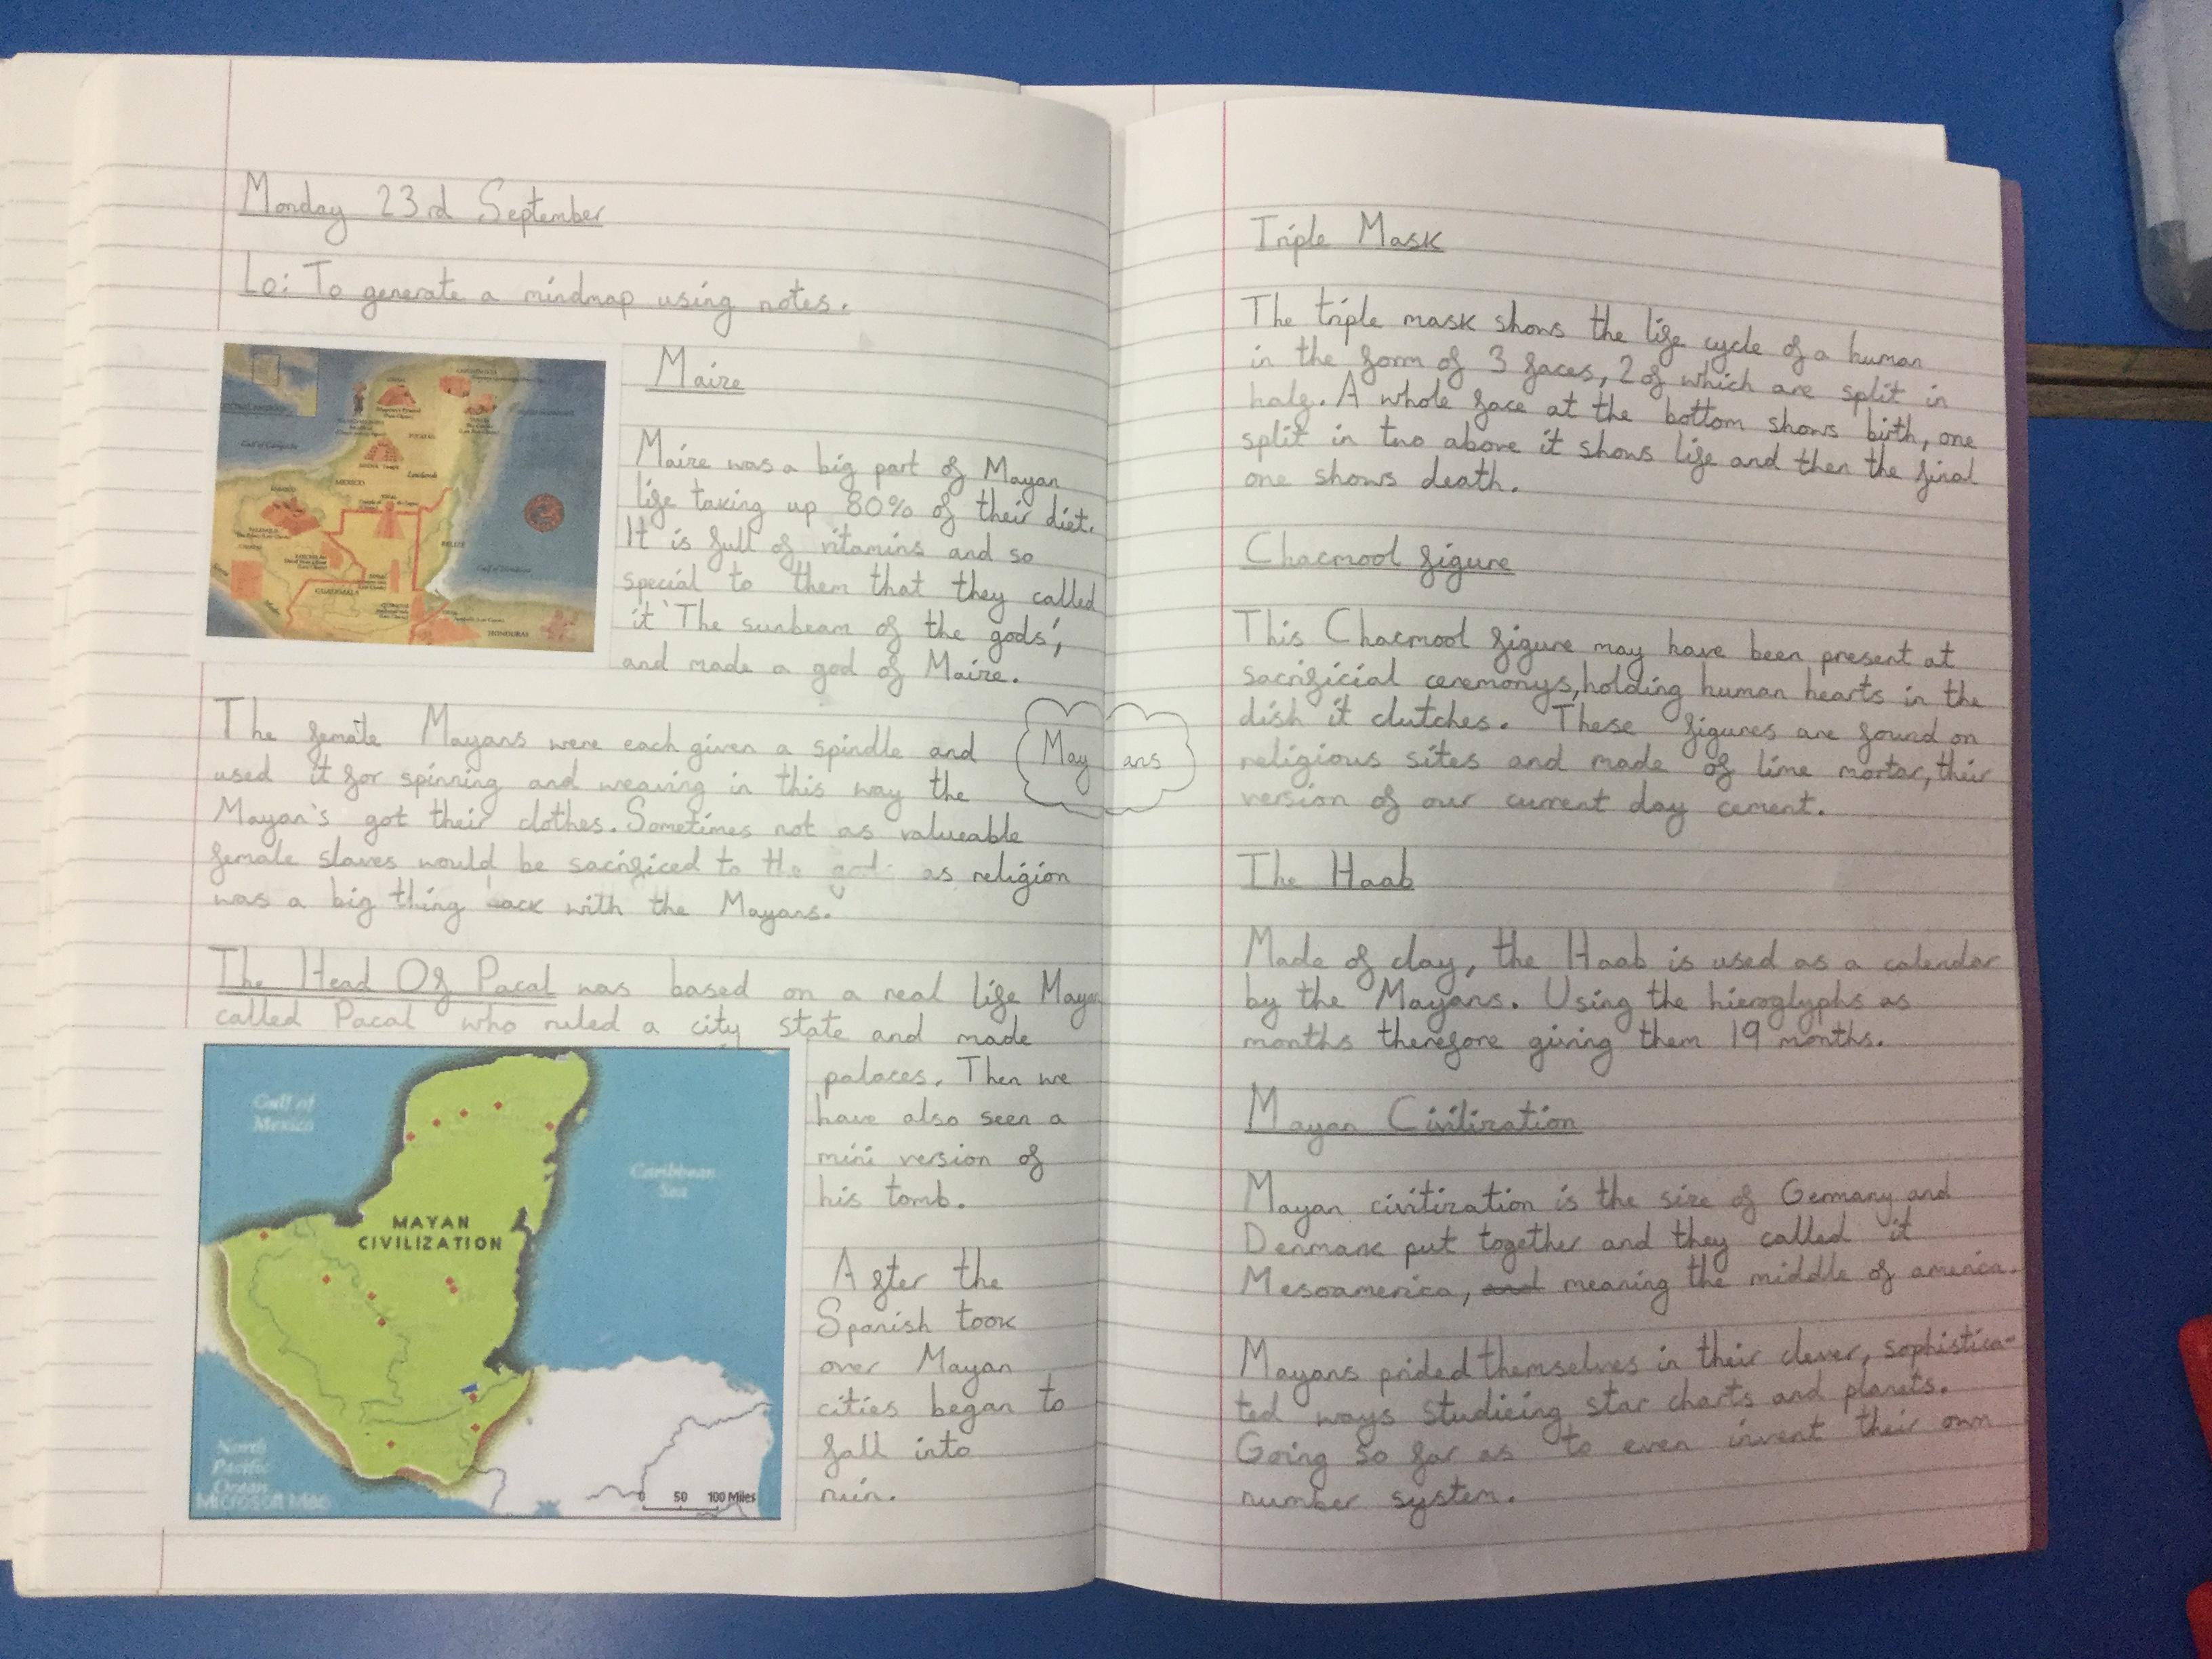 Monday 23rd September
Lo: To generate a mindmap using notes.
Maize
Maize was a big part of Mayan
life taking up 80% of their diet.
It is full of vitamins and so
special to them that they called
it 'The sunbeam of the gods',
and made a god of Maize.
The female Mayans were each given a spindle and
used it for spinning and weaving in this way the
Mayan's got their clothes. Sometimes not as valueable
female slaves would be sacrificed to the as religion
was a big thing back with the Mayans.
The Head Of Pacal was based on a real life Mayan
called Pacal who ruled a city state and made
palaces. Then we
have also seen a
mini version of
his tomb.
After the
Spanish took
over Mayan
cities began to
fall into
ruin.
MEXICO
Lowlands
BELIZE
GUATEMALA
HONDURAS
Gulf of
Mexico
Caribbean
Sea
MAYAN
CIVILIZATION
North
Pacific
Ocean
Microsoft Map
0 50 100 Miles
May ans
Triple Mask
The triple mask shows the life cycle of a human
in the form of 3 faces, 2 of which are split in
half. A whole face at the bottom shows birth, one
split in two above it shows life and then the final
one shows death.
Chacmool figure
This Chacmool figure may have been present at
sacrificial ceremonys, holding human hearts in the
dish it clutches. These figures are found on
religious sites and made of lime mortar, their
version of our current day cement.
The Haab
Made of clay, the Haab is used as a calendar
by the Mayans. Using the hieroglyphs as
months therefore giving them 19 months.
Mayan Civilization
Mayan civitization is the size of Germany and
Denmark put together and they called it
Mesoamerica, and meaning the middle of america.
Mayans prided themselves in their clever, sophistica-
ted ways studieing star charts and planets.
Going so far as to even invent their own
number system.